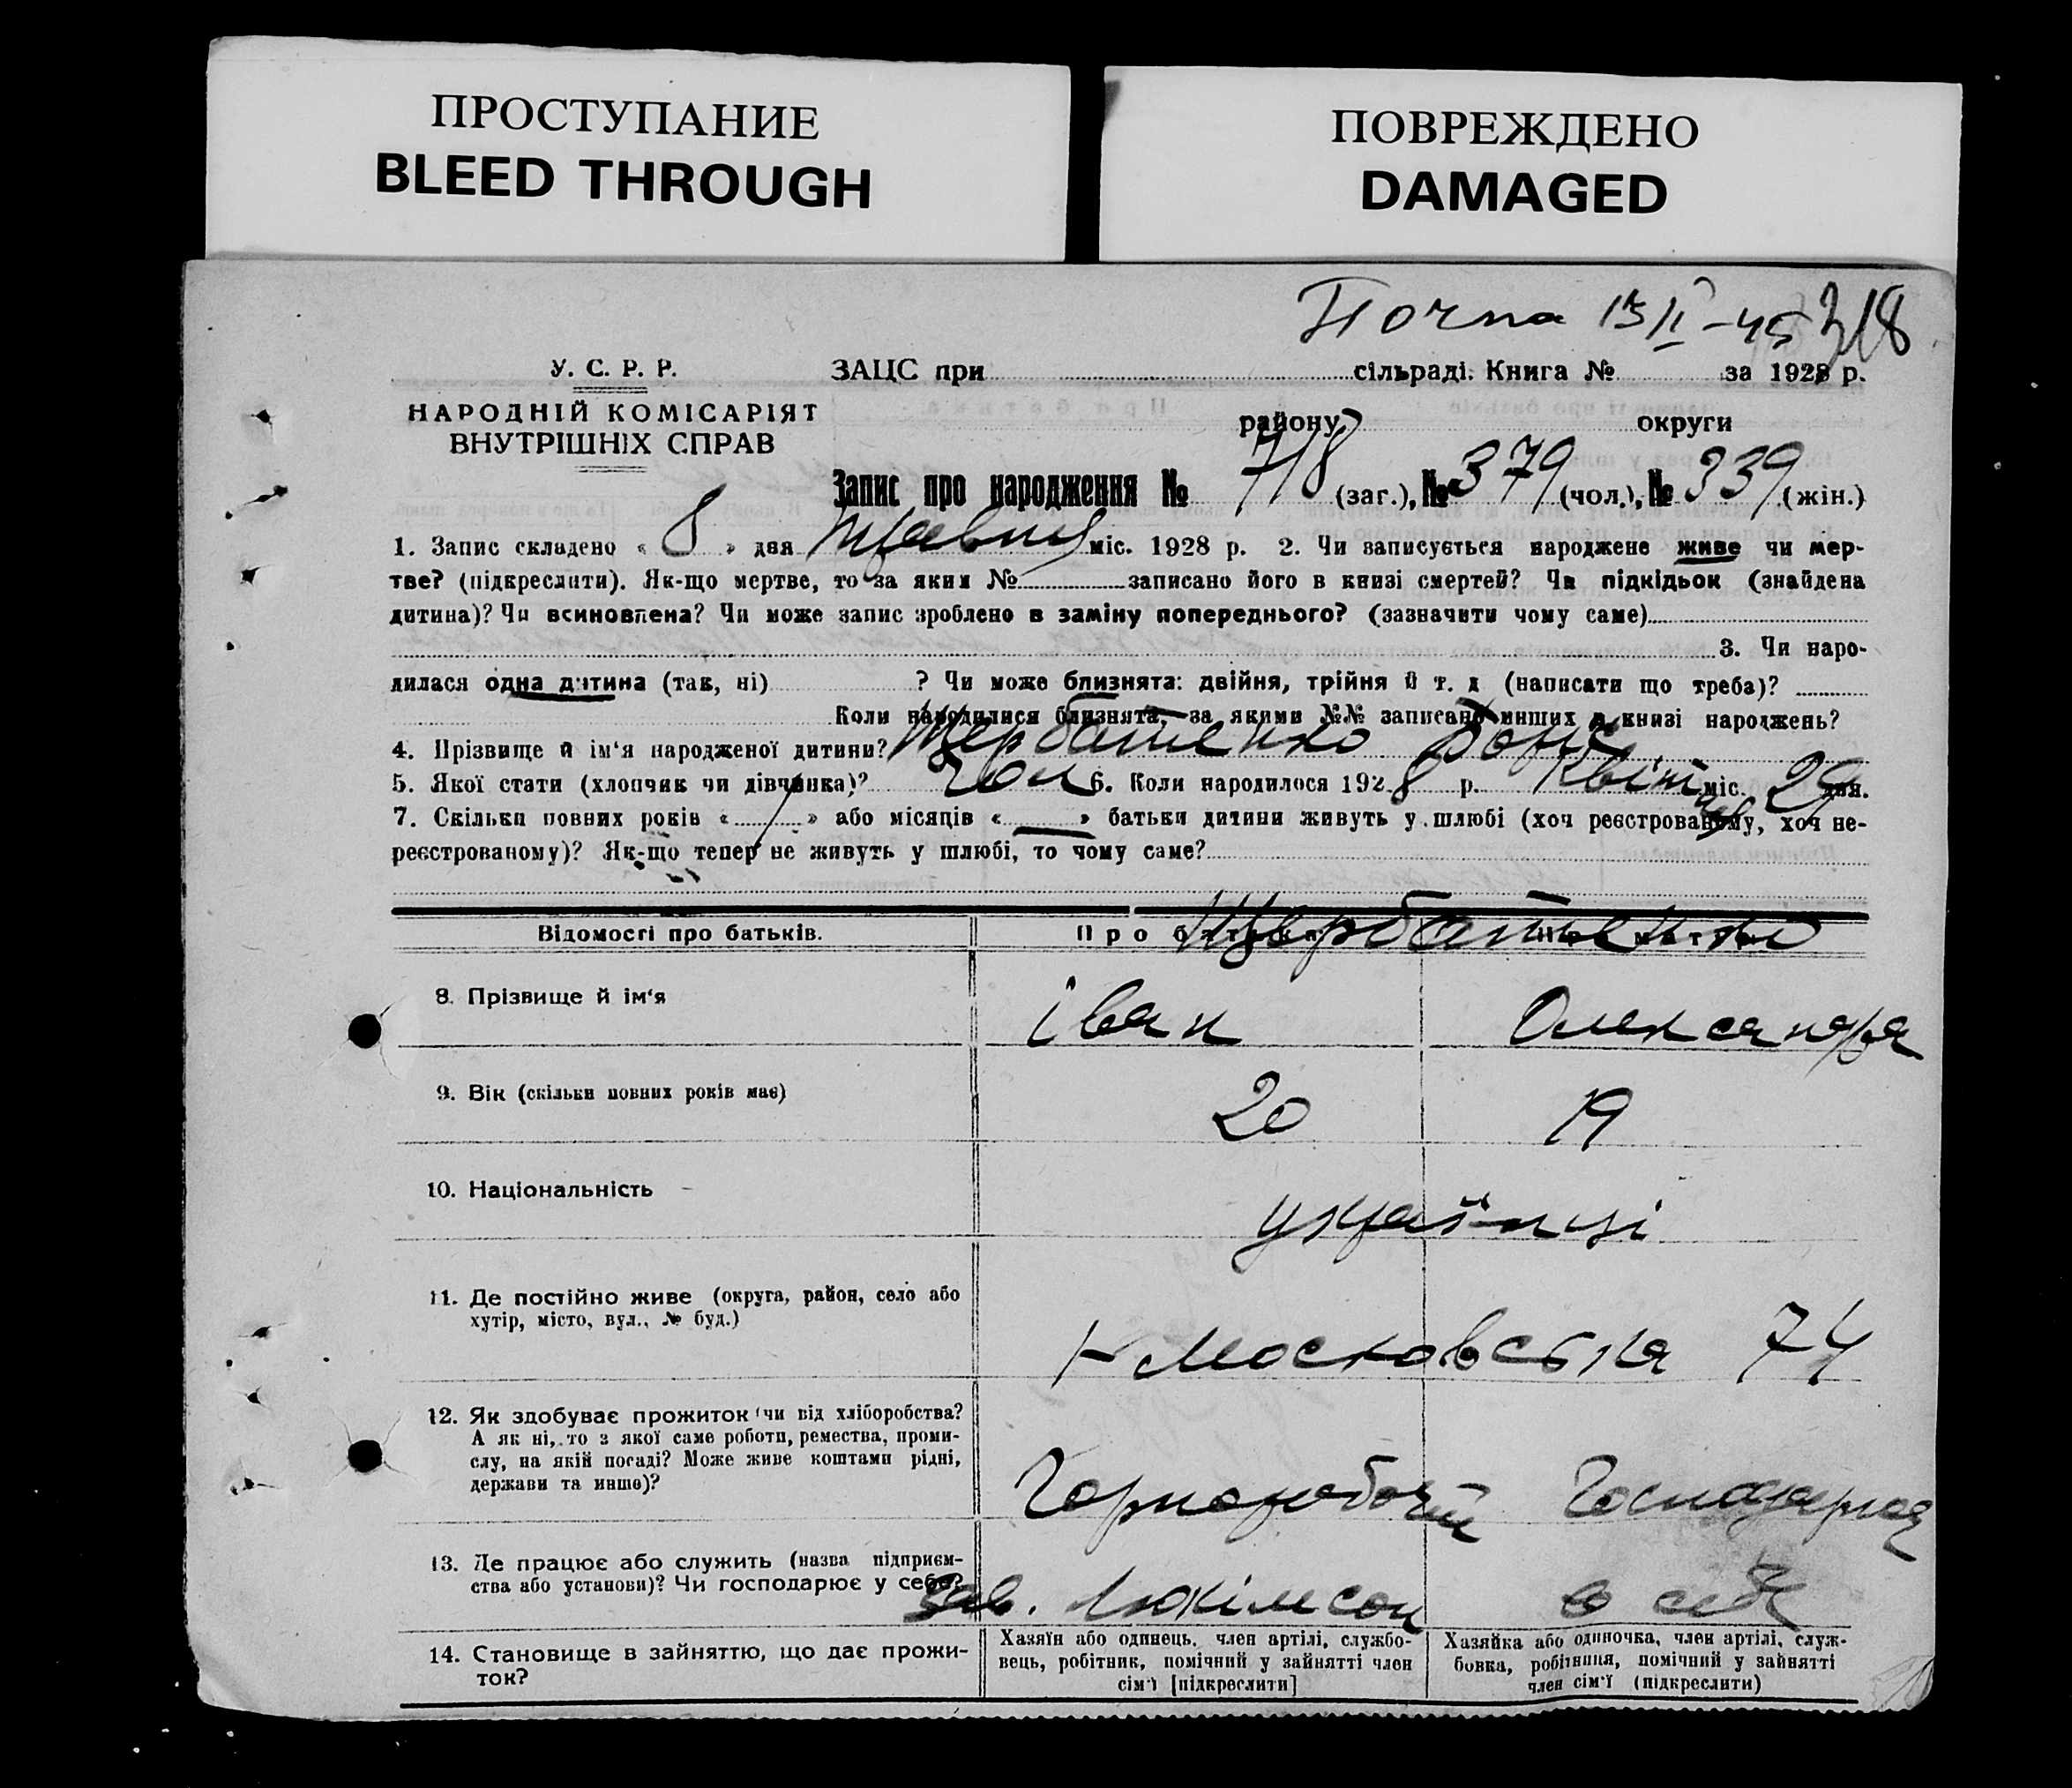 ПРОСТУПАНИЕ
BLEED THROUGH
ПОВРЕЖДЕНО
DAMAGED
Почта 15/II-45 318
У. С. Р. Р.
НАРОДНІЙ КОМІСАРІЯТ
ВНУТРІШНІХ СПРАВ
ЗАЦС при сільраді. Книга № за 1928 р.
району округи
Запис про народження № 718 (заг.), № 379 (чол.), № 339 (жін.)
1. Запис складено « 8 » дня травня міс. 1928 р. 2. Чи записується народжене живе чи мер-
тве? (підкреслити). Як-що мертве, то за яким № записано його в книзі смертей? Чи підкідьок (знайдена
дитина)? Чи всиновлена? Чи може запис зроблено в заміну попереднього? (зазначити чому саме)
3. Чи наро-
дилася одна дитина (так, ні) ? Чи може близнята: двійня, трійня й т. д (написати що треба)?
Коли народилися близнята, за якими №№ записано инших в книзі народжень?
4. Прізвище й ім‘я народженої дитини? Щербатенко Борис
5. Якої стати (хлопчик чи дівчинка)? чол 6. Коли народилося 1928 р. Квітня міс. 29 дня.
7. Скільки повних років « 1 » або місяців « — » батьки дитини живуть у шлюбі (хоч реєстрованому, хоч не-
реєстрованому)? Як-що тепер не живуть у шлюбі, то чому саме?
Відомості про батьків. Про батька Про матір
Щербатенко
8. Прізвище й ім‘я Іван Олександра
9. Вік (скільки повних років має) 20 19
10. Національність українці
11. Де постійно живе (округа, район, село або
хутір, місто, вул., № буд.)
Московська 74
12. Як здобуває прожиток (чи від хліборобства?
А як ні, то з якої саме роботи, ремества, проми-
слу, на якій посаді? Може живе коштами рідні,
держави та инше)?
Чорноробочий
13. Де працює або служить (назва підприєм-
ства або установи)? Чи господарює у себе?
зав. в себе
14. Становище в зайняттю, що дає прожи-
ток?
Хазяїн або одинець, член артілі, службо-
вець, робітник, помічний у зайнятті член
сім‘ї [підкреслити]
Хазяйка або одиночка, член артілі, служ-
бовка, робітниця, помічний у зайнятті
член сім‘ї (підкреслити)